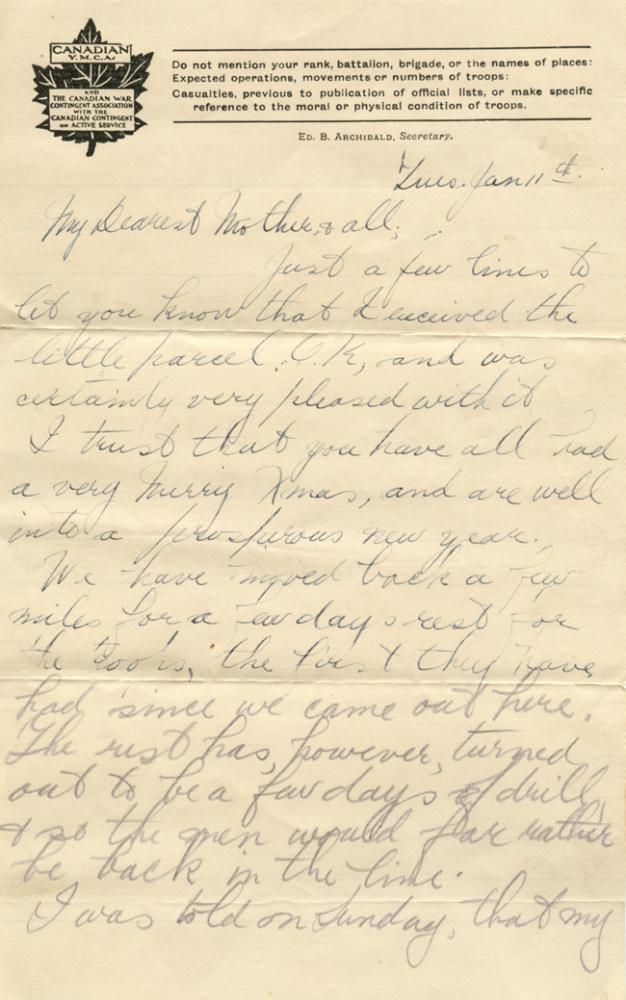 CANADIAN
Y.M.C.A.
AND
THE CANADIAN WAR
CONTINGENT ASSOCIATION
WITH THE
CANADIAN CONTINGENT
ON ACTIVE SERVICE
Do not mention your rank, battalion, brigade, or the names of places:
Expected operations, movements or numbers of troops:
Casualties, previous to publication of official lists, or make specific
reference to the moral or physical condition of troops.
ED. B. ARCHIBALD, Secretary.
Tues. Jan 11th.
My Dearest Mother & all,
Just a few lines to
let you know that I received the
little parcel O.K, and was
certainly very pleased with it
I trust that you have all had
a very Merry Xmas, and are well
into a prosperous new year.
We have moved back a few
miles for a few days rest for
the troops, the first they have
had since we came out here.
The rest has, however, turned
out to be a few days of drill,
& so the men would far rather
be back in the line.
I was told on Sunday, that my